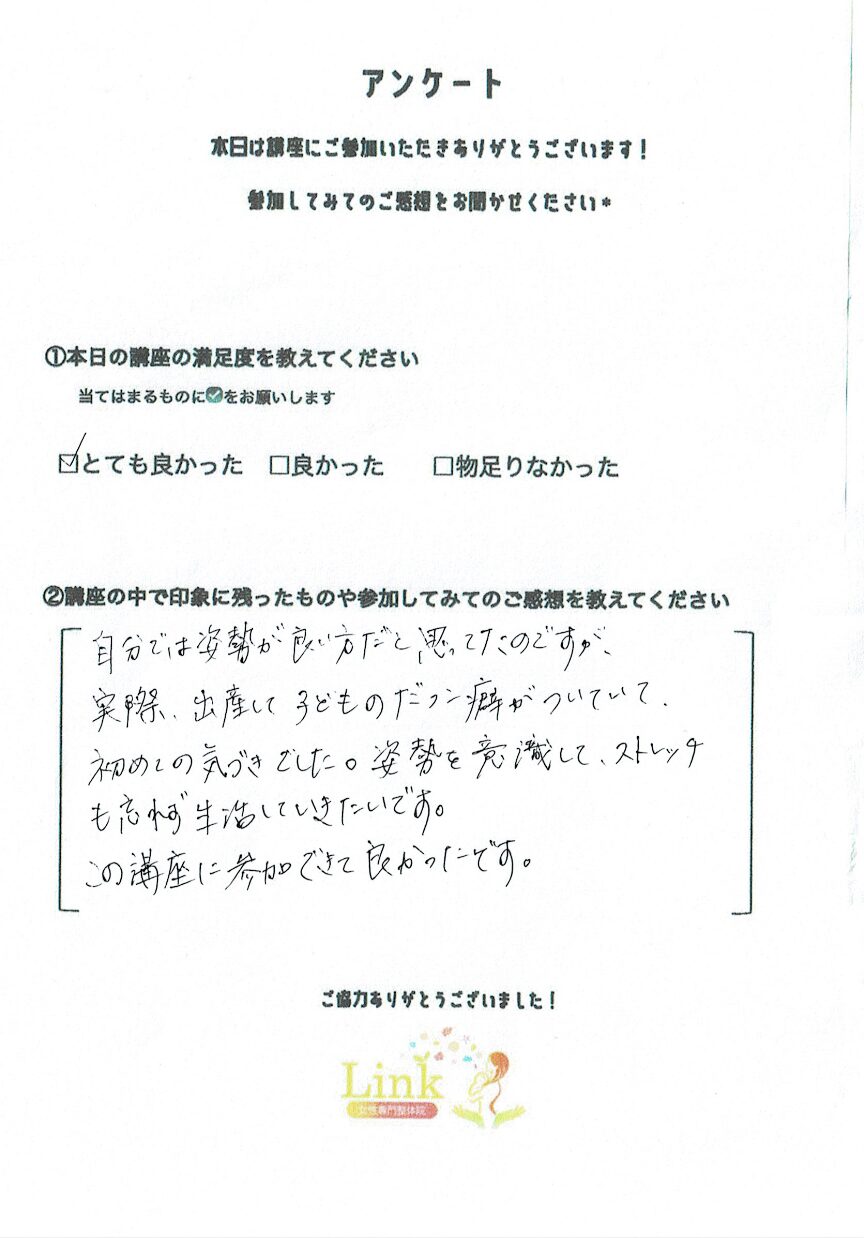 アンケート
本日は講座にご参加いただきありがとうございます！
参加してみてのご感想をお聞かせください*
①本日の講座の満足度を教えてください
当てはまるものに✓をお願いします
☑とても良かった　□良かった　□物足りなかった
②講座の中で印象に残ったものや参加してみてのご感想を教えてください
自分では姿勢が良い方だと思ってたのですが、
実際、出産して子どものだっこ癖がついていて、
初めての気づきでした。姿勢を意識して、ストレッチ
も忘れず生活していきたいです。
この講座に参加できて良かったです。
ご協力ありがとうございました！
Link
女性専門整体院